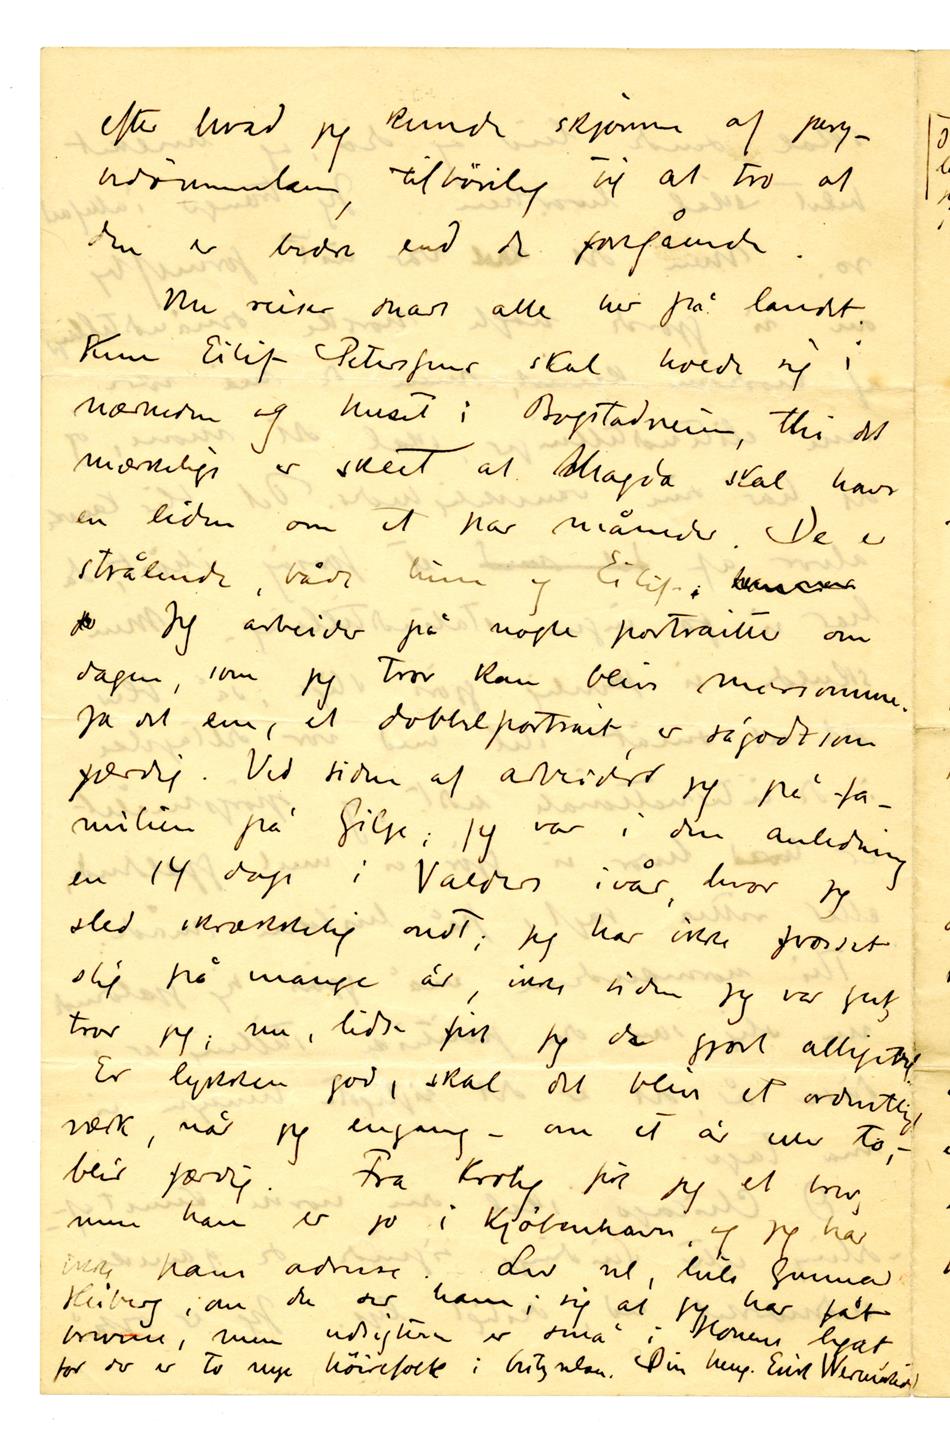 efter hvad jeg kunde skjønne af jury-
bedømmelsen, tilbøielig til at tro at
den er bedre end de foregående.
Nu reiser snart alle her på landet.
Kun Eilif Peterssens skal holde sig i
nærheden og huset i Bogstadveien, thi det
mærkelige er skeet at Magda skal have
en liden om et par måneder. De er
strålende, både hun og Eilif.
Jeg arbeider på nogle portraitter om
dagen, som jeg tror kan blive morsomme.
Ja det ene, et dobbeltportrait, er sågodtsom
færdig. Ved siden af arbeider jeg på fa-
milien på Gilje; jeg var i den anledning
en 14 dage i Valders ivår, hvor jeg
sled skrækkelig ondt; jeg har ikke frosset
slig på mange år, ikke siden jeg var gut,
tror jeg; nu, lidt fik jeg da gjort alligevel.
Er lykken god, skal det blive et ordentligt
værk, når jeg engang – om et år eller to, –
blir færdig. Fra Krohg fik jeg et brev,
men han er jo i Kjøbenhavn, og jeg har
ikke hans adresse. Lev vel, hils Gunnar
Heiberg, om du ser ham; sig at jeg har fåt
brevene, men udsigterne er små i
for der er to nye høirefolk i bestyrelsen. Din heng. Erik Werenskiold